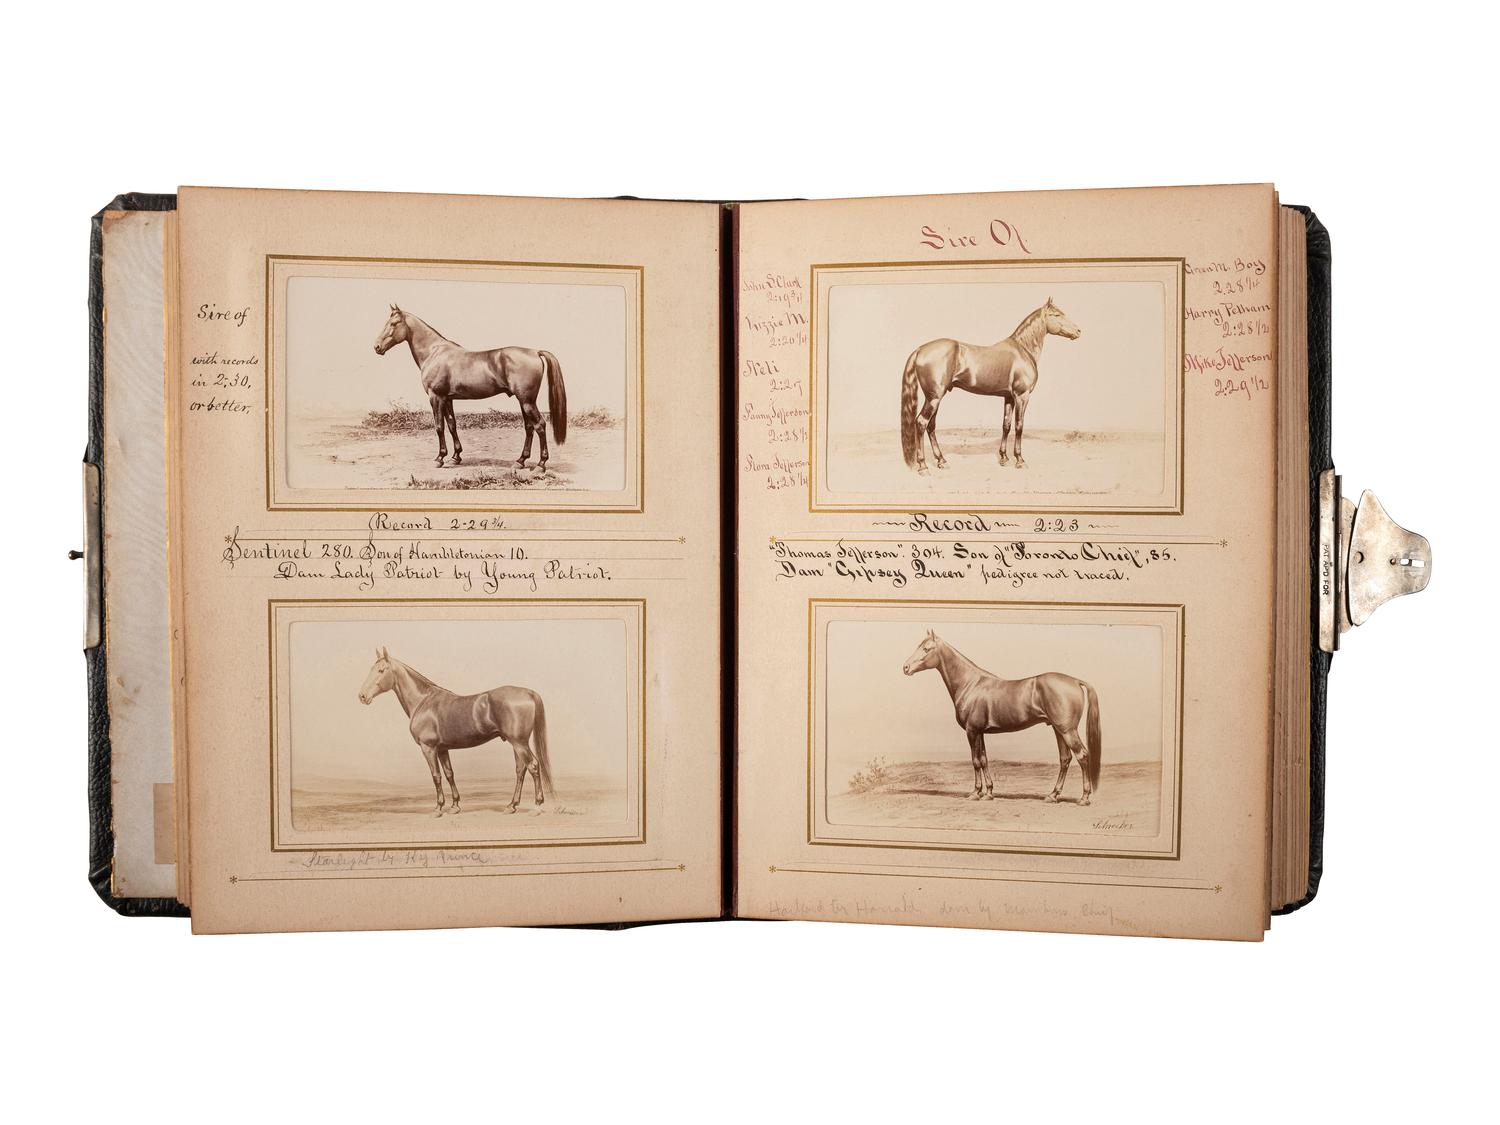 Sire of
with records
in 2:30,
or better,
Record 2-29 3/4.
Sentinel 280. Son of Hambletonian 10.
Dam Lady Patriot by Young Patriot.
Starlight by Hy Prince
Sire Of
John S. Clark
2:19 3/4
Lizzie M.
2:20 1/4
Neli
2:27
Fanny Jefferson
2:28 1/2
Flora Jefferson
2:28 1/4
Green M. Boy
2.28 1/4
Harry Pelham
2:28 1/2
Mike Jefferson
2:29 1/2
Record 2:23
"Thomas Jefferson". 304. Son of "Toronto Chief", 85.
Dam "Gipsey Queen" pedigree not traced.
Schreiber
Harold dam by Mambrino Chief
PAT APD FOR